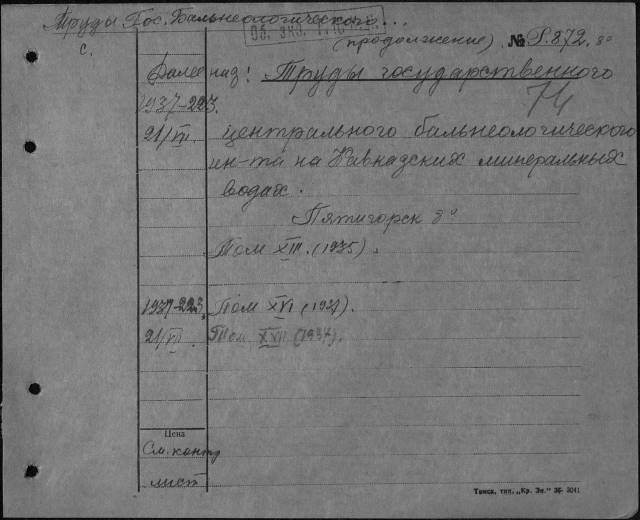 Труды Гос. Бальнеологического...
с.
Об. экз.
(продолжение) № P.872. 8°
Далее над: Труды государственного
74
1937-223.
21/VII центрального бальнеологического
ин-та на Кавказских минеральных
водах.
Пятигорск 8°
Том XIII. (1935).
1937-223. Том XVI (1937).
21/VII Том XVII (1937).
Цена
См. контр
лист
Томск, тип. „Кр. Зн." 36- 3041